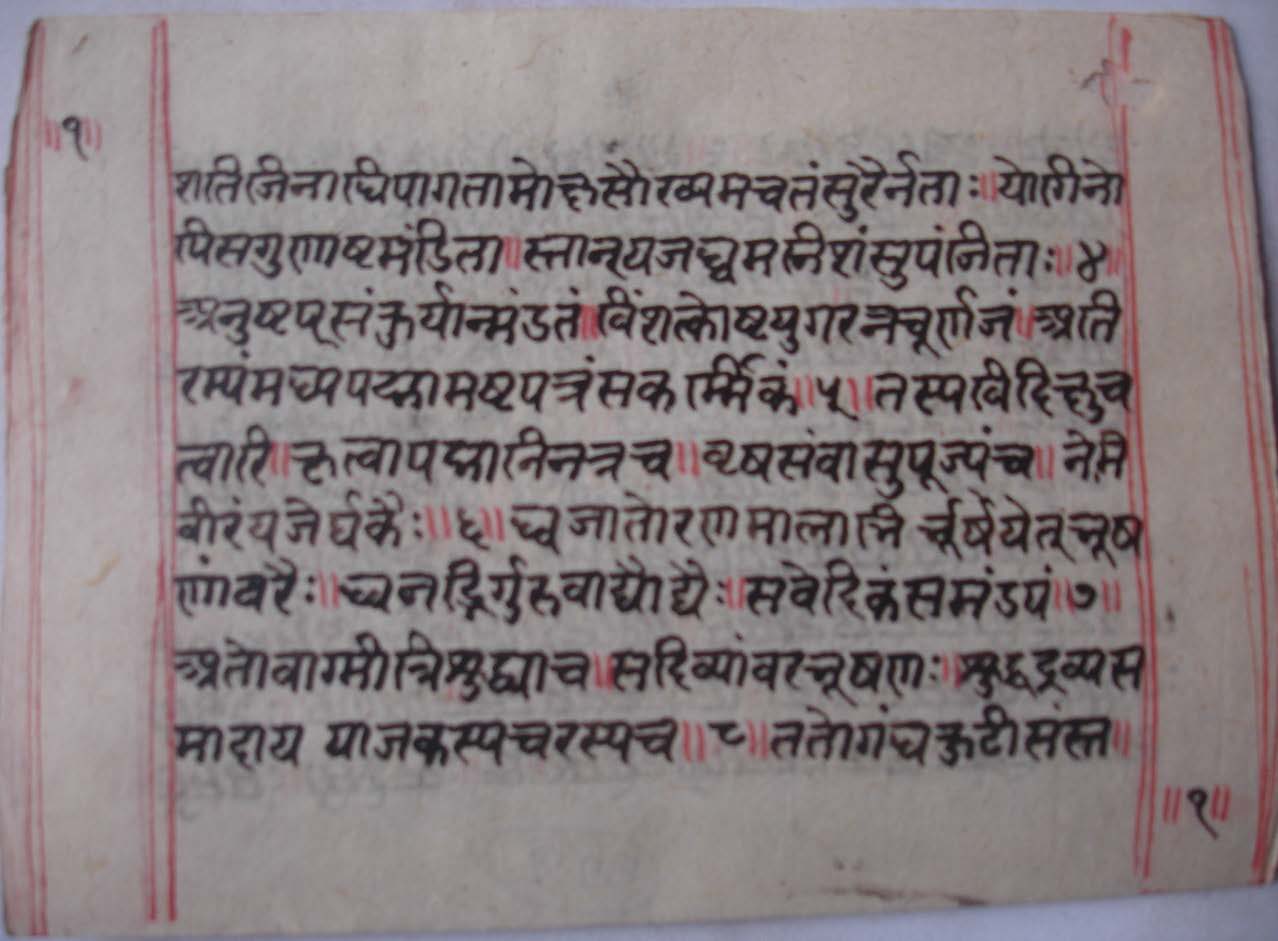 ॥१॥
शतिजिनाधिपागतामोक्षसौख्यमचलंसुरैर्नताः॥योगीनो
पिसगुणाष्टमंडिता॥स्तान्‌यजध्वमनिशंसुपंजिताः॥४॥
अनुष्टप्‌संकुर्यान्मंडलं॥विंशत्कोष्टयुगरत्नचूर्णजं॥अति
रम्यंमध्यपद्ममष्टपत्रंसकर्म्मिकं॥५॥तस्य
त्वारि॥कृत्वापद्मानितत्रच॥वृषसंवासुपूज्यंच॥नेमि
वीरंयजेर्घकैः॥६॥ध्वजातोरणमालाभि र्भूषयेत्‌भूष
णंवरैः॥ध्वनद्भिर्गुरुवाद्यौद्यैः॥सवेदिकंसमंडपं॥७॥
अतोवाग्मीत्रिशुद्ध्याच॥सदिव्यांवरभूषणः॥शुद्धद्रव्यस
मादाय याजकस्पचरस्पच॥८॥ततोगंधकुटीसंस्त॥
॥१॥